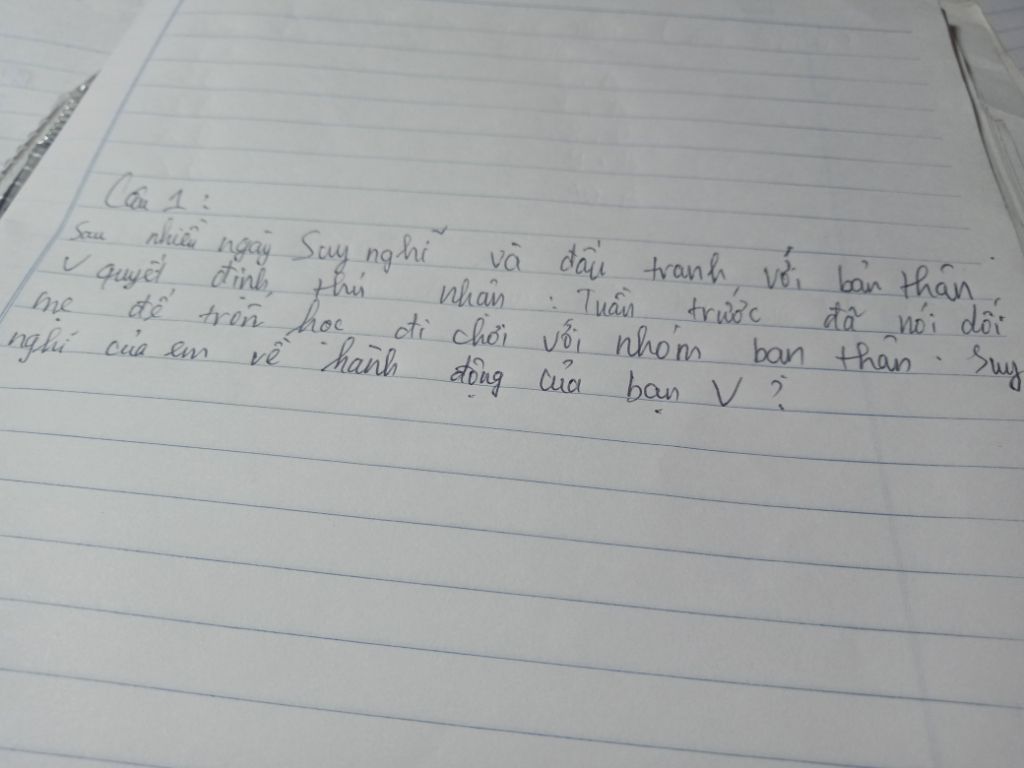 Câu 1:
Sau nhiều ngày Suy nghĩ và đấu tranh với bản thân,
V quyết định thú nhận: Tuần trước đã nói dối
mẹ để trốn học đi chơi với nhóm bạn thân. Suy
nghĩ của em về hành động của bạn V?